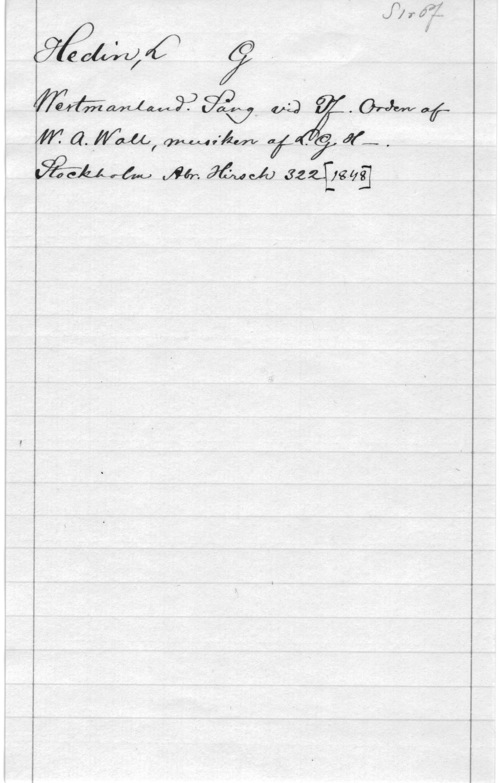 Hedin, L G
Westmanland. Sång vid Pf. Orden af
W. A. Wall, musiken af L. G. H—.
Stockholm Abr. Hirsch 322 [1848]